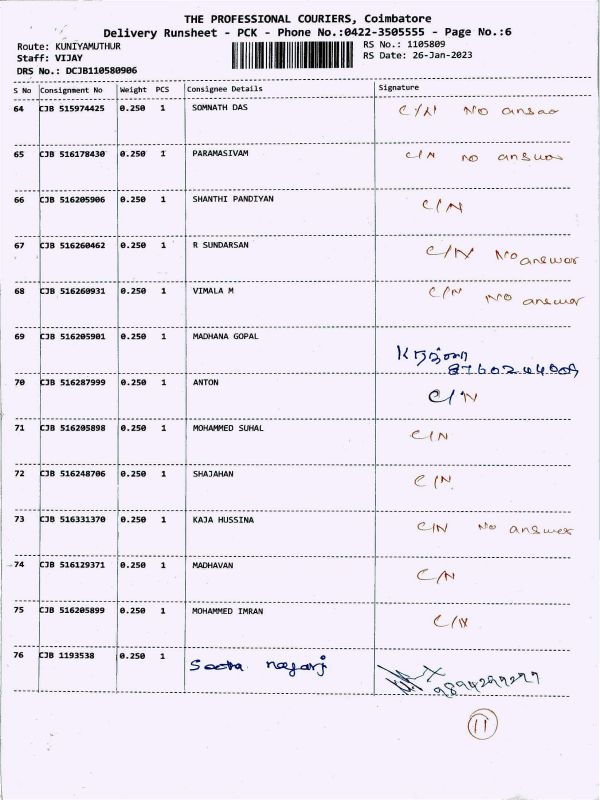 THE PROFESSIONAL COURIERS, Coimbatore
Delivery Runsheet - PCK - Phone No.:0422-3505555 - Page No.:6
Route: KUNIYAMUTHUR RS No.: 1105809
Staff: VIJAY RS Date: 26-Jan-2023
DRS No.: DCJB110580906
S No Consignment No Weight PCS Consignee Details Signature
64 CJB 515974425 0.250 1 SOMNATH DAS C/N No
65 CJB 516178430 0.250 1 PARAMASIVAM C/N no
66 CJB 516205906 0.250 1 SHANTHI PANDIYAN C/N
67 CJB 516260462 0.250 1 R SUNDARSAN C/N No answer
68 CJB 516260931 0.250 1 VIMALA M C/N No answer
69 CJB 516205901 0.250 1 MADHANA GOPAL
70 CJB 516287999 0.250 1 ANTON C/N
71 CJB 516205898 0.250 1 MOHAMMED SUHAL C/N
72 CJB 516248706 0.250 1 SHAJAHAN C/N
73 CJB 516331370 0.250 1 KAJA HUSSINA C/N No answer
74 CJB 516129371 0.250 1 MADHAVAN C/N
75 CJB 516205899 0.250 1 MOHAMMED IMRAN C/N
76 CJB 1193538 0.250 1
11